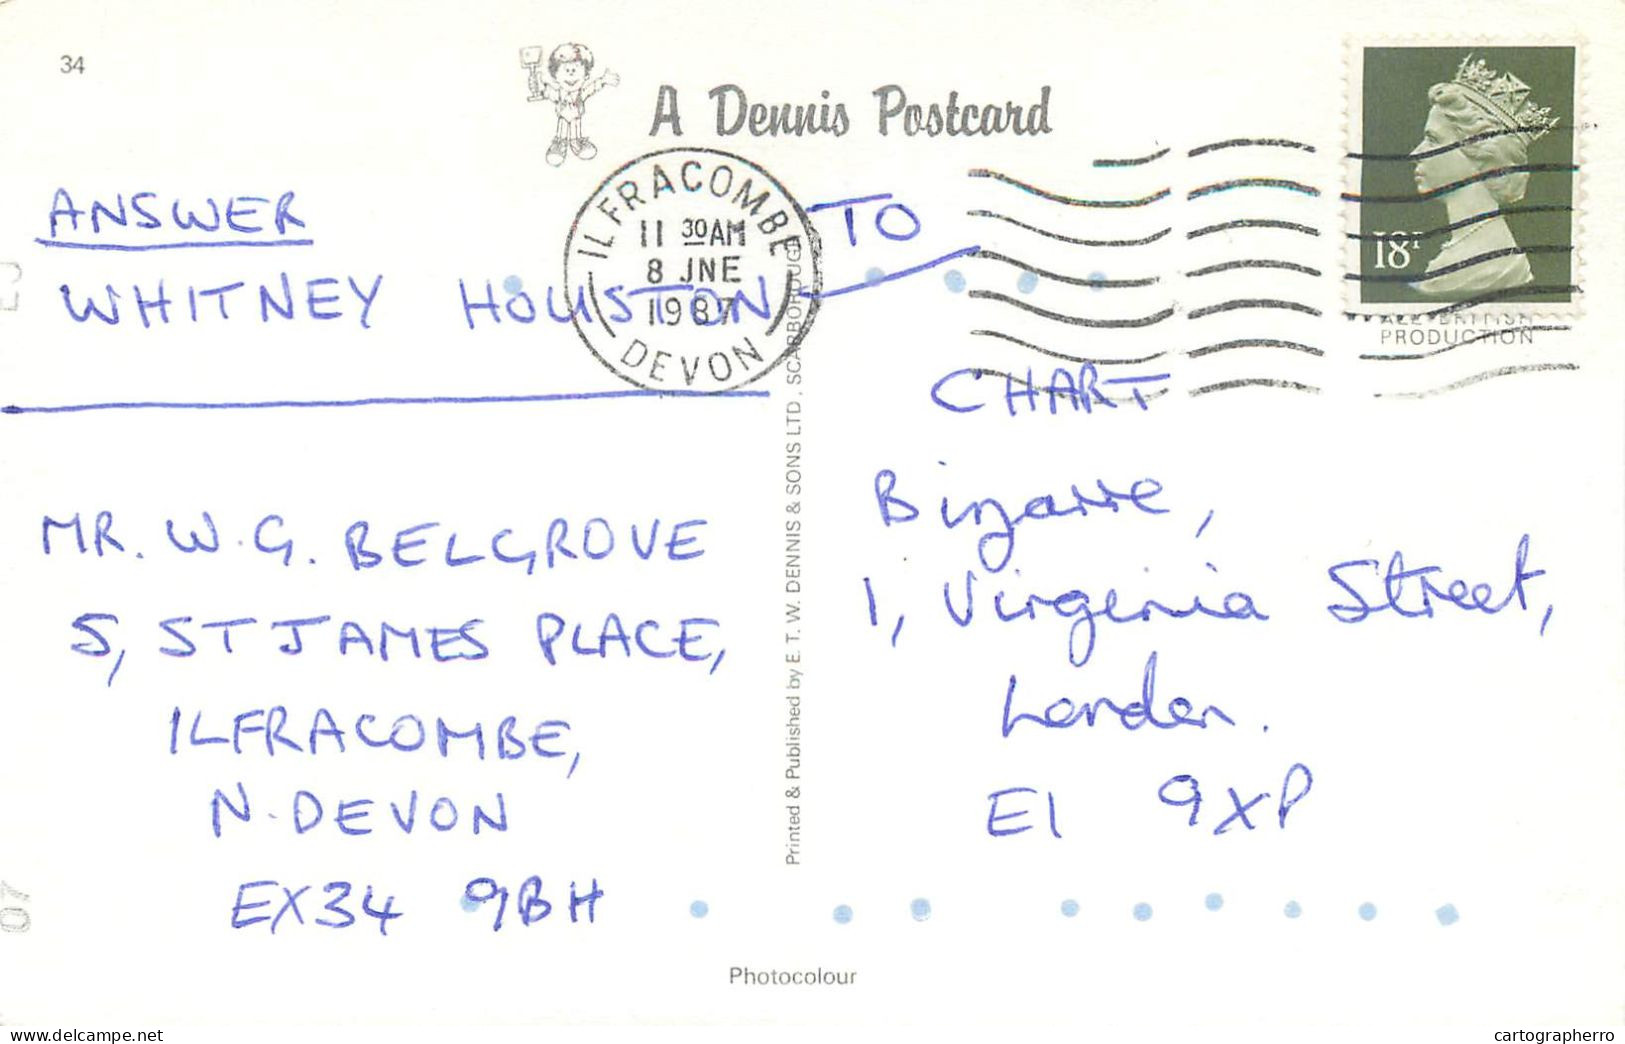 34
A Dennis Postcard
ILFRACOMBE
11 30AM
8 JNE
1987
DEVON
18P
ALL BRITISH
PRODUCTION
ANSWER
WHITNEY HOUSTON
MR. W. G. BELGROVE
5, ST JAMES PLACE,
ILFRACOMBE,
N. DEVON
EX34 9BH
Printed & Published by E. T. W. DENNIS & SONS LTD. SCARBOROUGH
TO
CHART
Bizarre,
1, Virginia Street,
London.
E1 9XP
07
Photocolour
delcampe.net
cartographerro